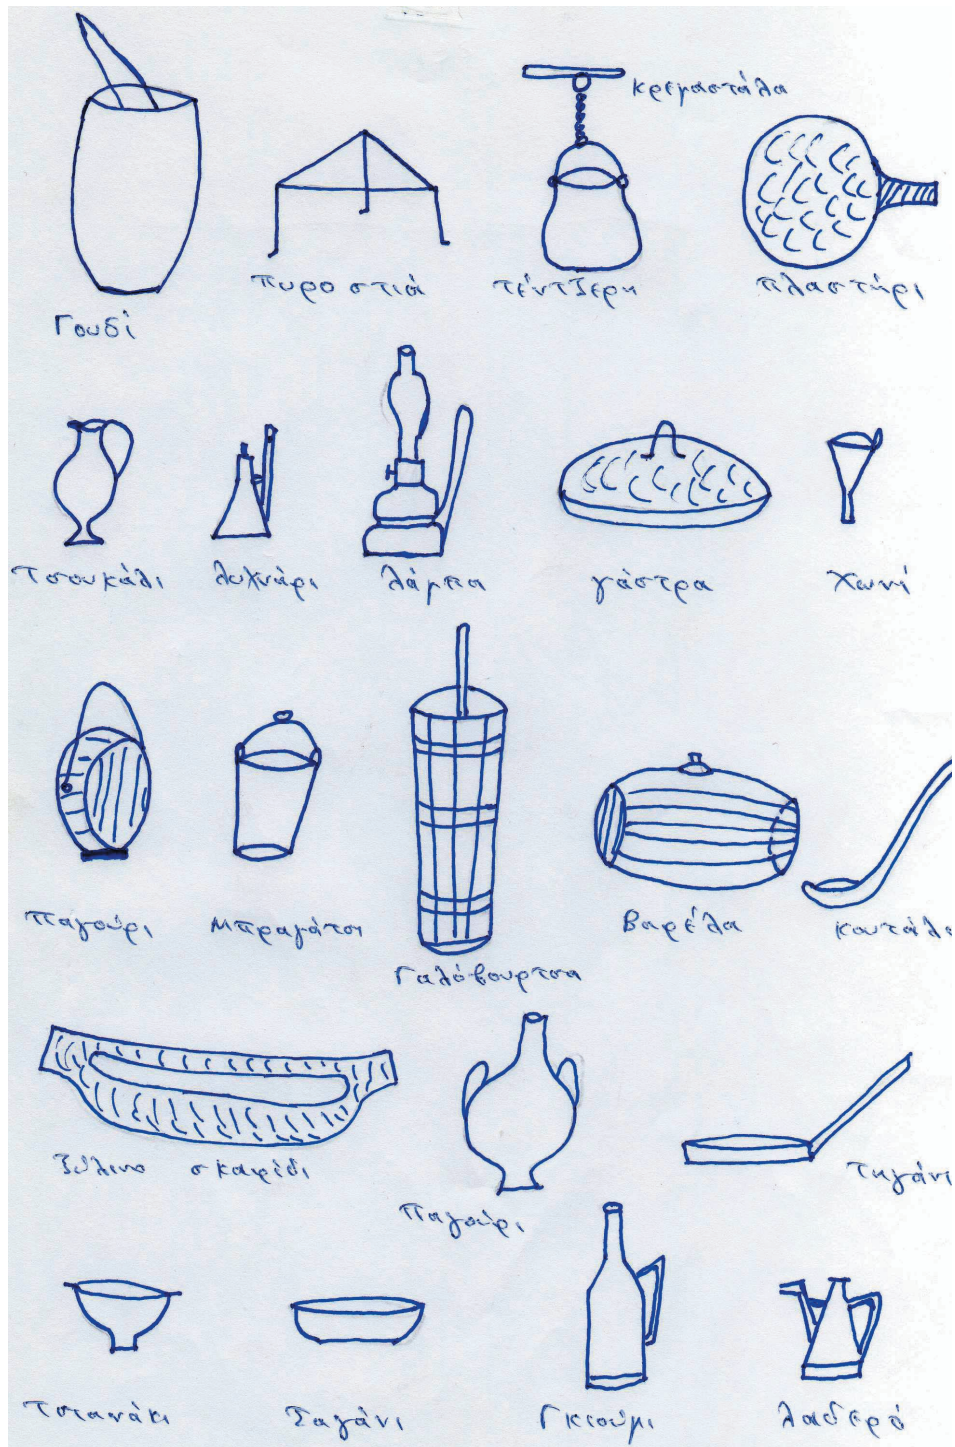 κρεμαστάλα
Γουδί
πυροστιά
τέντζερη
πλαστήρι
Τσουκάλι
λυχνάρι
λάμπα
γάστρα
Χωνί
παγούρι
Μπραγάτσι
Γαλόβουρτσα
Βαρέλα
κουτάλα
Ξύλινο σκαφίδι
παγούρι
Τηγάνι
Τσανάκι
Σαγάνι
Γκιούμι
λαδερό